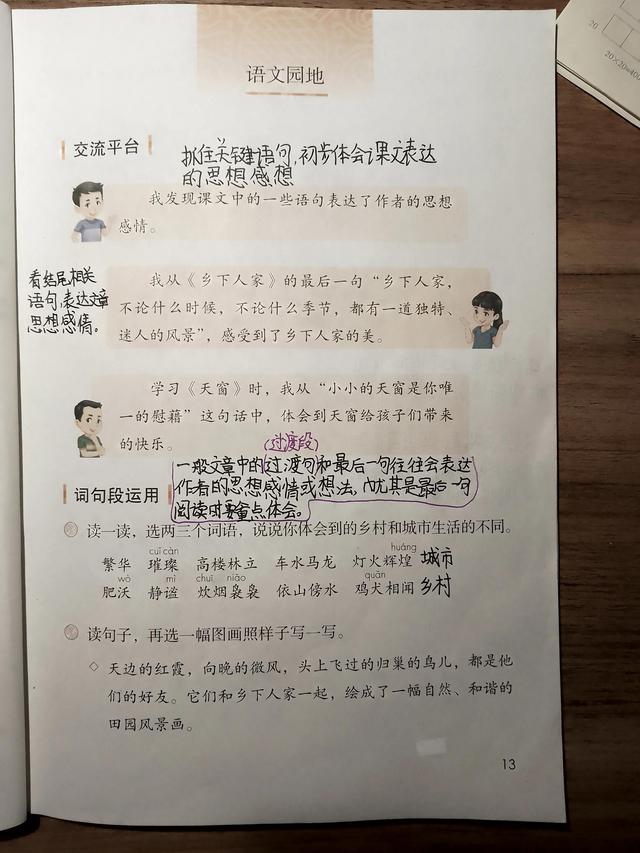 语文园地
交流平台
抓住关键语句,初步体会课文表达
的思想感想
我发现课文中的一些语句表达了作者的思想
感情。
看结尾相关
语句,表达文章
思想感情。
我从《乡下人家》的最后一句“乡下人家，
不论什么时候，不论什么季节，都有一道独特、
迷人的风景”，感受到了乡下人家的美。
学习《天窗》时，我从“小小的天窗是你唯
一的慰藉”这句话中，体会到天窗给孩子们带来
的快乐。
(过渡段)
一般文章中的过渡句和最后一句往往会表达
作者的思想感情或想法,尤其是最后一句
阅读时要重点体会。
词句段运用
读一读，选两三个词语，说说你体会到的乡村和城市生活的不同。
cuǐ càn huáng
繁华 璀璨 高楼林立 车水马龙 灯火辉煌 城市
wò mì chuī niǎo quǎn
肥沃 静谧 炊烟袅袅 依山傍水 鸡犬相闻 乡村
读句子，再选一幅图画照样子写一写。
◇ 天边的红霞，向晚的微风，头上飞过的归巢的鸟儿，都是他
们的好友。它们和乡下人家一起，绘成了一幅自然、和谐的
田园风景画。
13
20
20×20=400